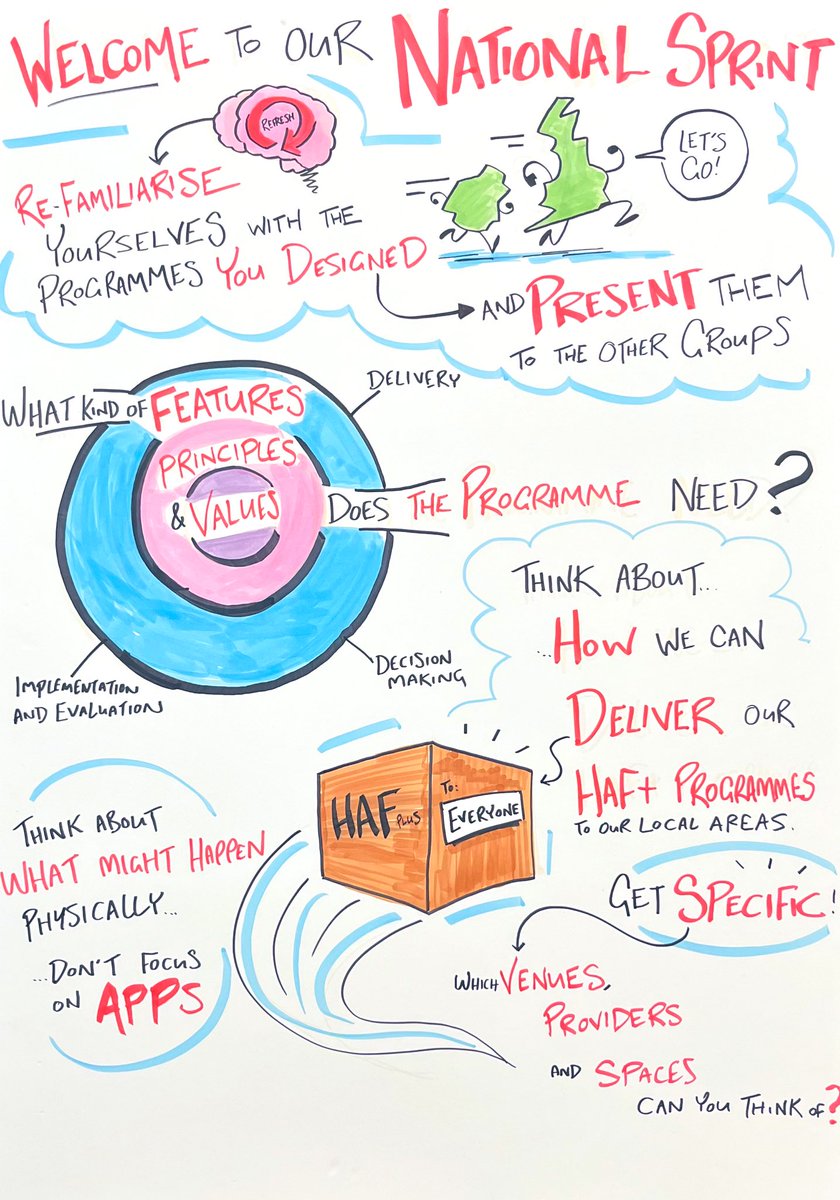 WELCOME TO OUR NATIONAL SPRINT
REFRESH
LET'S
GO!
RE-FAMILIARISE
YOURSELVES WITH THE
PROGRAMMES YOU DESIGNED
AND PRESENT THEM
TO THE OTHER GROUPS
WHAT KIND OF FEATURES
PRINCIPLES
& VALUES
DOES THE PROGRAMME NEED?
DELIVERY
DECISION
MAKING
IMPLEMENTATION
AND EVALUATION
THINK ABOUT...
...HOW WE CAN
DELIVER OUR
HAF+ PROGRAMMES
TO OUR LOCAL AREAS.
HAF PLUS
TO:
EVERYONE
THINK ABOUT
WHAT MIGHT HAPPEN
PHYSICALLY...
...DON'T FOCUS
ON APPS
GET SPECIFIC!
WHICH VENUES,
PROVIDERS
AND SPACES
CAN YOU THINK OF?